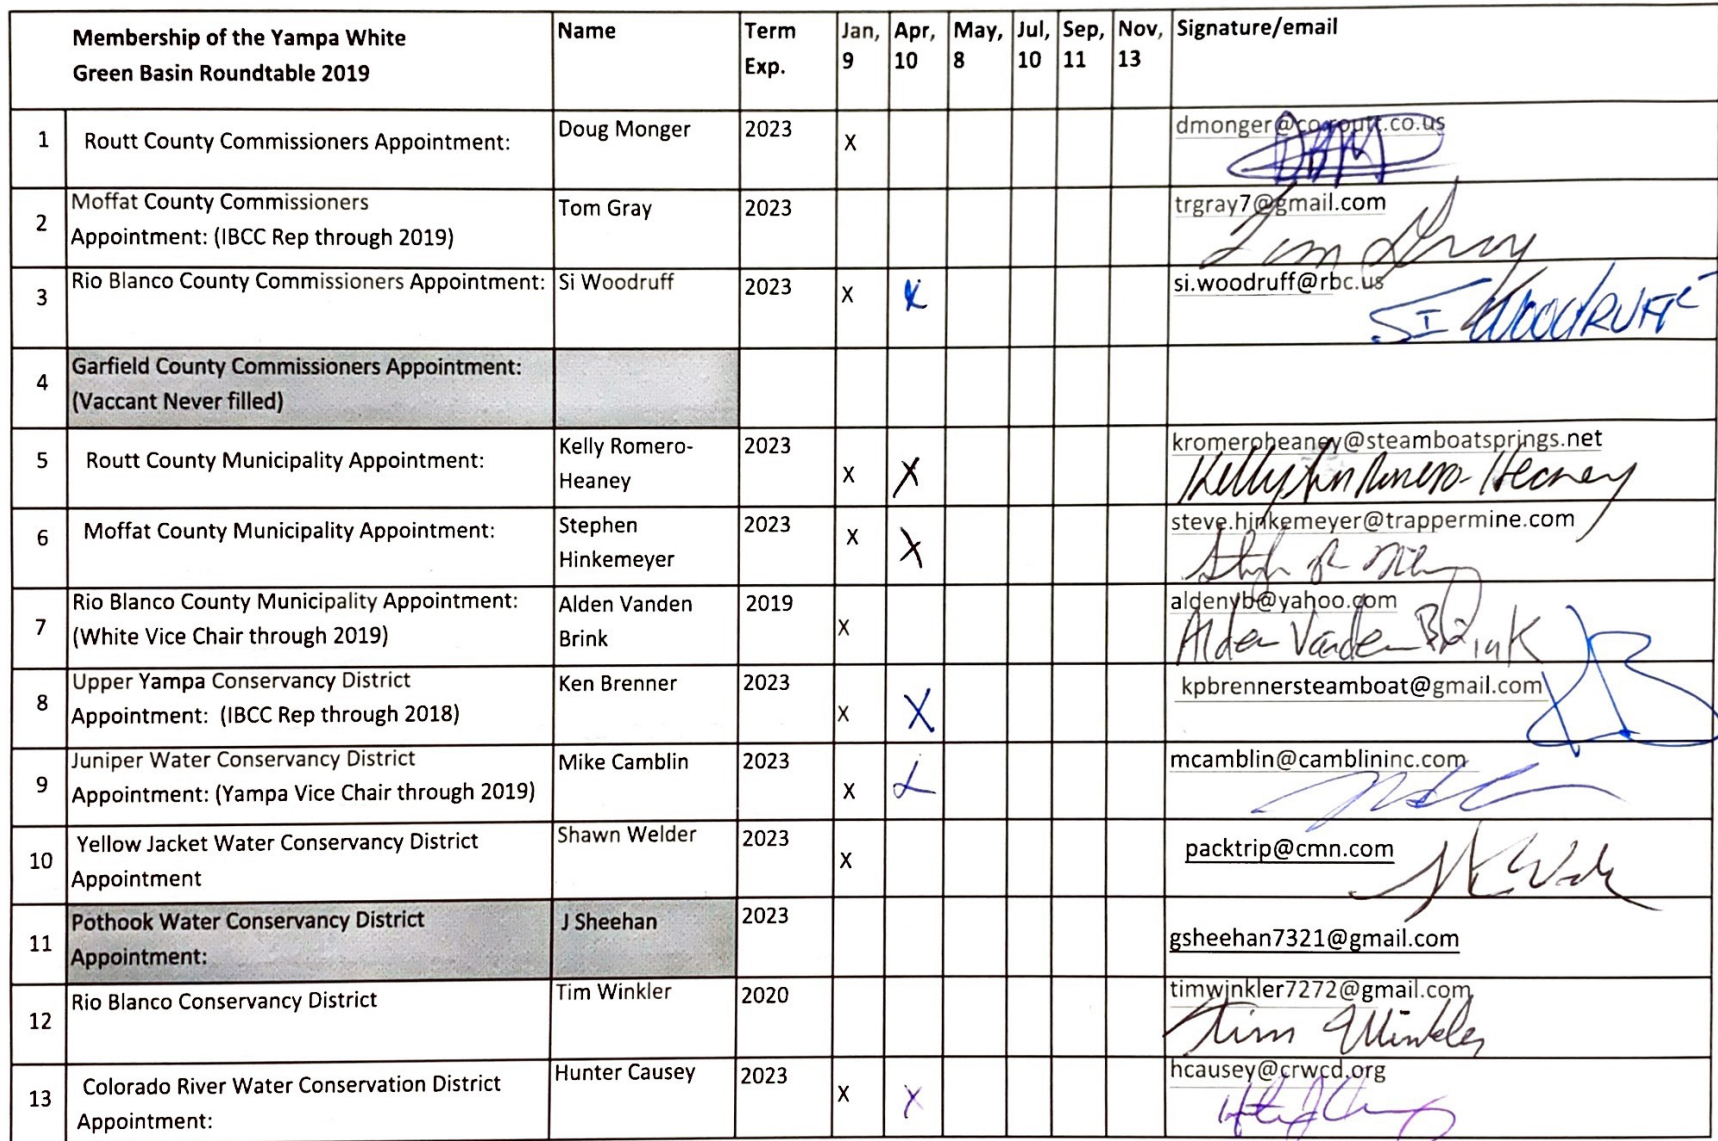 Membership of the Yampa White
Green Basin Roundtable 2019
Name
Term
Exp.
Jan,
9
Apr,
10
May,
8
Jul,
10
Sep,
11
Nov,
13
Signature/email
1
Routt County Commissioners Appointment:
Doug Monger
2023
X
dmonger@co.routt.co.us
2
Moffat County Commissioners
Appointment: (IBCC Rep through 2019)
Tom Gray
2023
trgray7@gmail.com
Tom Gray
3
Rio Blanco County Commissioners Appointment:
Si Woodruff
2023
X
X
si.woodruff@rbc.us
SI WOODRUFF
4
Garfield County Commissioners Appointment:
(Vaccant Never filled)
5
Routt County Municipality Appointment:
Kelly Romero-
Heaney
2023
X
X
kromeroheaney@steamboatsprings.net
Kelly Romero-Heaney
6
Moffat County Municipality Appointment:
Stephen
Hinkemeyer
2023
X
X
steve.hinkemeyer@trappermine.com
7
Rio Blanco County Municipality Appointment:
(White Vice Chair through 2019)
Alden Vanden
Brink
2019
X
aldenvb@yahoo.com
Alden Vanden Brink
8
Upper Yampa Conservancy District
Appointment: (IBCC Rep through 2018)
Ken Brenner
2023
X
X
kpbrennersteamboat@gmail.com
KB
9
Juniper Water Conservancy District
Appointment: (Yampa Vice Chair through 2019)
Mike Camblin
2023
X
X
mcamblin@camblininc.com
10
Yellow Jacket Water Conservancy District
Appointment
Shawn Welder
2023
X
packtrip@cmn.com
11
Pothook Water Conservancy District
Appointment:
J Sheehan
2023
gsheehan7321@gmail.com
12
Rio Blanco Conservancy District
Tim Winkler
2020
timwinkler7272@gmail.com
Tim Winkler
13
Colorado River Water Conservation District
Appointment:
Hunter Causey
2023
X
X
hcausey@crwcd.org